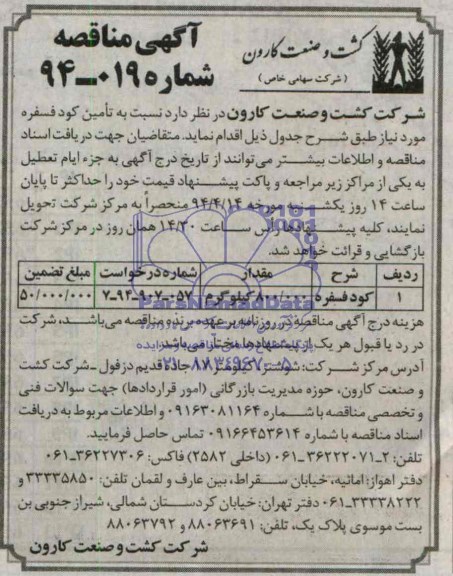 کشت و صنعت کارون
(شرکت سهامی خاص)
آگهی مناقصه
شماره ۰۱۹-۹۴
شرکت کشت و صنعت کارون در نظر دارد نسبت به تأمین کود فسفره
مورد نیاز طبق شرح جدول ذیل اقدام نماید. متقاضیان جهت دریافت اسناد
مناقصه و اطلاعات بیشتر می‌توانند از تاریخ درج آگهی به جزء ایام تعطیل
به یکی از مراکز زیر مراجعه و پاکت پیشنهاد قیمت خود را حداکثر تا پایان
ساعت ۱۴ روز یکشنبه مورخه ۹۴/۴/۱۴ منحصراً به مرکز شرکت تحویل
نمایند، کلیه پیشنهادها راس ساعت ۱۴/۳۰ همان روز در مرکز شرکت
بازگشایی و قرائت خواهد شد.
ردیف شرح مقدار شماره درخواست مبلغ تضمین
۱ کود فسفره ۸۰۰/۰۰۰ کیلوگرم ۷-۹۴-۹۰۷-۰۵۷ ۵۰/۰۰۰/۰۰۰
هزینه درج آگهی مناقصه در روزنامه بر عهده برنده مناقصه می‌باشد، شرکت
در رد یا قبول هر یک از پیشنهادها مختار می‌باشد.
آدرس مرکز شرکت: شوشتر کیلومتر ۱۸ جاده قدیم دزفول ـ شرکت کشت
و صنعت کارون، حوزه مدیریت بازرگانی (امور قراردادها) جهت سوالات فنی
و تخصصی مناقصه با شماره ۰۹۱۶۳۰۸۱۱۶۴ و اطلاعات مربوط به دریافت
اسناد مناقصه با شماره ۰۹۱۶۶۴۵۳۶۱۴ تماس حاصل فرمایید.
تلفن: ۲-۳۶۲۲۲۰۷۱-۰۶۱ (داخلی ۲۵۸۲) فاکس: ۳۶۲۲۷۳۰۶-۰۶۱
دفتر اهواز: امانیه، خیابان سقراط، بین عارف و لقمان تلفن: ۳۳۳۳۵۸۵۰ و
۳۳۳۳۸۲۲۲-۰۶۱ دفتر تهران: خیابان کردستان شمالی، شیراز جنوبی بن
بست موسوی پلاک یک، تلفن: ۸۸۰۶۳۶۹۱ و ۸۸۰۶۳۷۹۲
شرکت کشت و صنعت کارون
ParsNamadData